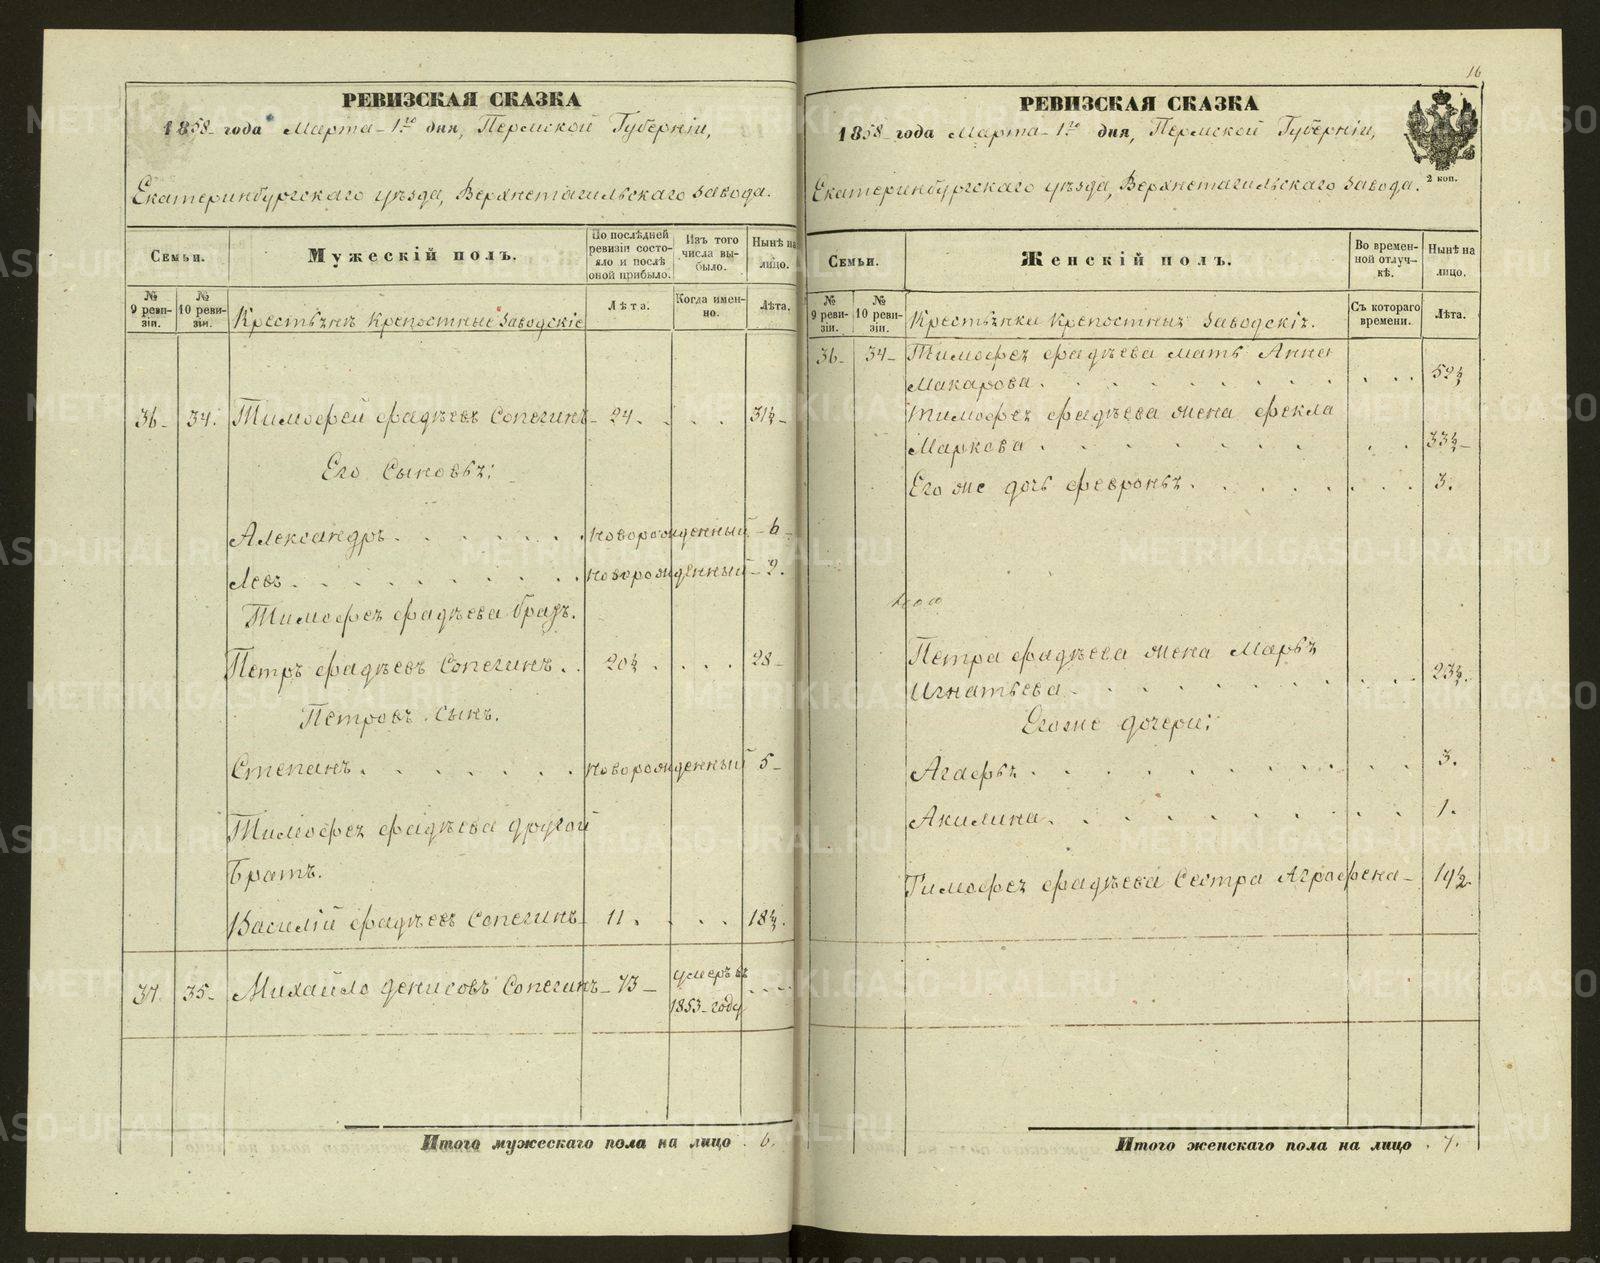 РЕВИЗСКАЯ СКАЗКА
1858 года Марта 1го дня, Пермской Губернии,
Екатеринбургскаго уѣзда, Верхнетагильскаго Завода.
Семьи.
Мужескій полъ.
По послѣдней ревизіи состояло и послѣ оной прибыло.
Изъ того числа выбыло.
Нынѣ на лицо.
№ 9 ревизіи.
№ 10 ревизіи.
Крестьянѣ Крепостные Заводскіе
Лѣта.
Когда именно.
Лѣта.
36 34. Тимофей Фадѣевъ Сопегинъ 24. 31½
Его Сыновья:
Александръ новорожденный 6
Левъ новорожденный 2.
Тимофея Фадѣева братъ.
Петръ Фадѣевъ Сопегинъ 20½ 28
Петровъ сынъ.
Степанъ новорожденный 5
Тимофея Фадѣева другой
Братъ.
Василій Фадѣевъ Сопегинъ 11. 18½.
37. 35 Михайло Денисовъ Сопегинъ 73 умеръ въ 1853 году
Итого мужескаго пола на лицо 6.
16
РЕВИЗСКАЯ СКАЗКА
1858 года Марта 1го дня, Пермской Губерніи,
Екатеринбургскаго уѣзда, Верхнетагильскаго Завода.
2 коп.
Семьи.
Женскій полъ.
Во временной отлучкѣ.
Нынѣ на лицо.
№ 9 ревизіи.
№ 10 ревизіи.
Крестьянки Крепостныя Заводскія.
Съ котораго времени.
Лѣта.
36 34 Тимофея Фадѣева мать Анна
Макарова. 52½
Тимофея Фадѣева жена Фекла
Маркова 33½
Его же дочь Февронья. 3.
Петра Фадѣева жена Марья
Игнатьева 23½.
Его же дочери:
Агафья 3.
Акилина 1.
Тимофея Фадѣева Сестра Аграфена 19½
Итого женскаго пола на лицо 7.
METRIKI.GASO-URAL.RU